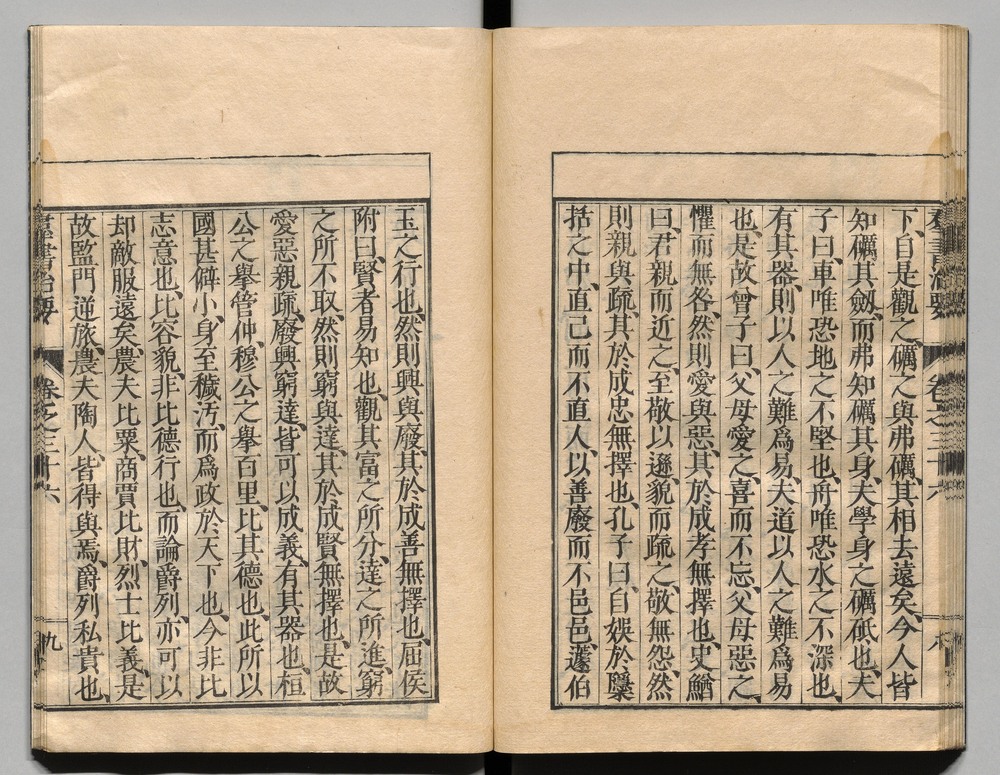 羣書治要 卷之三十六 八
下、自是觀之、礪之與弗礪、其相去遠矣、今人皆
知礪其劔、而弗知礪其身、夫學身之礪砥也、夫
子曰、車唯恐地之不堅也、舟唯恐水之不深也、
有其器、則以人之難爲易、夫道以人之難爲易
也、是故曾子曰、父母愛之、喜而不忘、父母惡之、
懼而無咎、然則愛與惡、其於成孝無擇也、史鰌
曰、君親而近之、至敬以遜、貌而疏之、敬無怨、然
則親與疏、其於成忠無擇也、孔子曰、自娛於檃
括之中、直己而不直人、以善廢而不邑邑、蘧伯
玉之行也、然則興與廢、其於成善無擇也、屈侯
附曰、賢者易知也、觀其富之所分、達之所進、窮
之所不取、然則窮與達、其於成賢無擇也、是故
愛惡親疏、廢興窮達、皆可以成義、有其器也、桓
公之擧管仲、穆公之擧百里、比其德也、此所以
國甚僻小、身至穢汚、而爲政於天下也、今非比
志意也、比容貌、非比德行也、而論爵列、亦可以
却敵服遠矣、農夫比粟、商賈比財、烈士比義、是
故監門逆旅、農夫陶人、皆得與焉、爵列私貴也、
羣書治要 卷之三十六 九